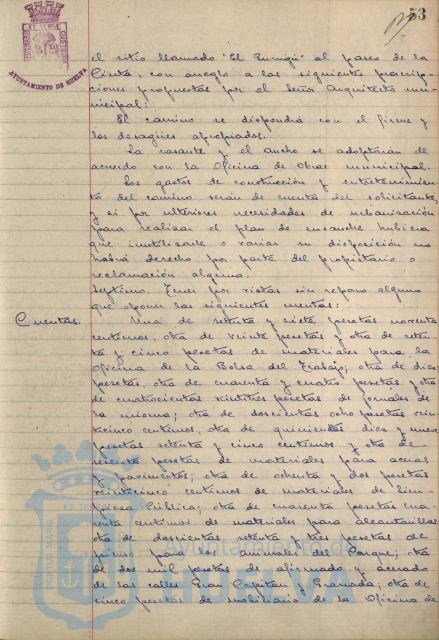 53
AYUNTAMIENTO DE HUELVA
el sitio llamado "El" al paseo de la
Cinta, con arreglo a las siguientes prescrip-
ciones propuestas por el Señor Arquitecto mu-
nicipal:
El camino se dispondrá con el firme y
los desagües apropiados.
La rasante y el ancho se adoptarán de
acuerdo con la Oficina de Obras municipal.
Los gastos de construcción y entretenimien-
to del camino serán de cuenta del solicitante,
y si por ulteriores necesidades de urbanización
para realizar el plan de ensanche hubiera
que inutilizarle o variar su disposición no
habrá derecho por parte del propietario a
reclamación alguna.
Septimo. Tener por vistas sin reparo alguno
que oponer las siguientes cuentas:
Cuentas.
Una de setenta y siete pesetas noventa
centimos, otra de veinte pesetas y otra de seten-
ta y cinco pesetas de materiales para la
Oficina de la Bolsa del Trabajo; otra de diez
pesetas, otra de cuarenta y cuatro pesetas y otra
de cuatrocientas veintitres pesetas de jornales de
la misma; otra de doscientas ocho pesetas vein-
ticinco centimos, otra de quinientas diez y nueve
pesetas setenta y cinco centimos y otra de
sesenta pesetas de materiales para aceras
y pavimentos; otra de ochenta y dos pesetas
veinticinco centimos de materiales de Lim-
pieza Pública; otra de cuarenta pesetas cua-
renta centimos de materiales para alcantarillas
otra de doscientas setenta y tres pesetas de
pienso para los animales del Parque; otra
de dos mil pesetas de afirmado y acerado
de las calles Gran Capitan y Granada; otra de
cinco pesetas de mobiliario de la Oficina de